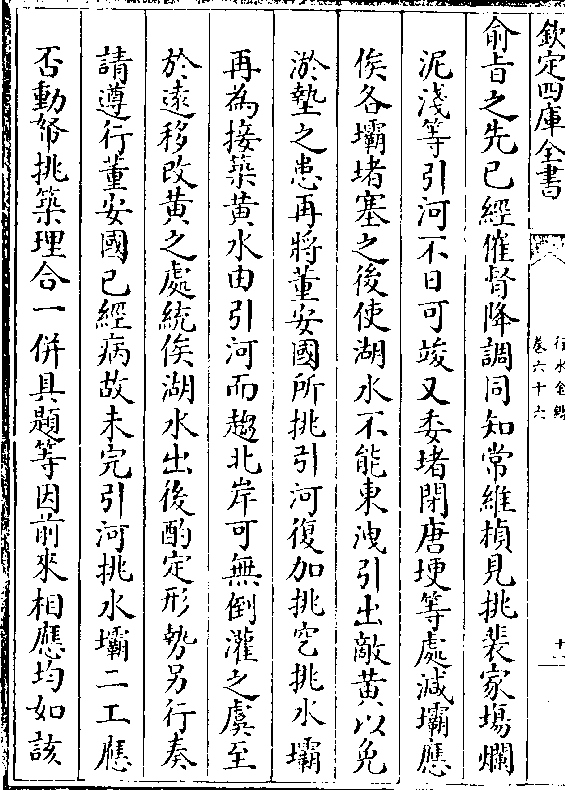 欽定四庫全書
行水金鑑
卷六十六
十一
俞旨之先已經催督降調同知常維楨見挑裴家塲爛
泥淺等引河不日可竣又委堵閉唐埂等處減壩應
俟各壩堵塞之後使湖水不能東洩引出敵黃以免
淤墊之患再將董安國所挑引河復加挑空挑水壩
再為接築黃水由引河而趨北岸可無倒灌之虞至
於遠移改黃之處統俟湖水出後酌定形勢另行奏
請遵行董安國已經病故未完引河挑水壩二工應
否動帑挑築理合一併具題等因前來相應均如該